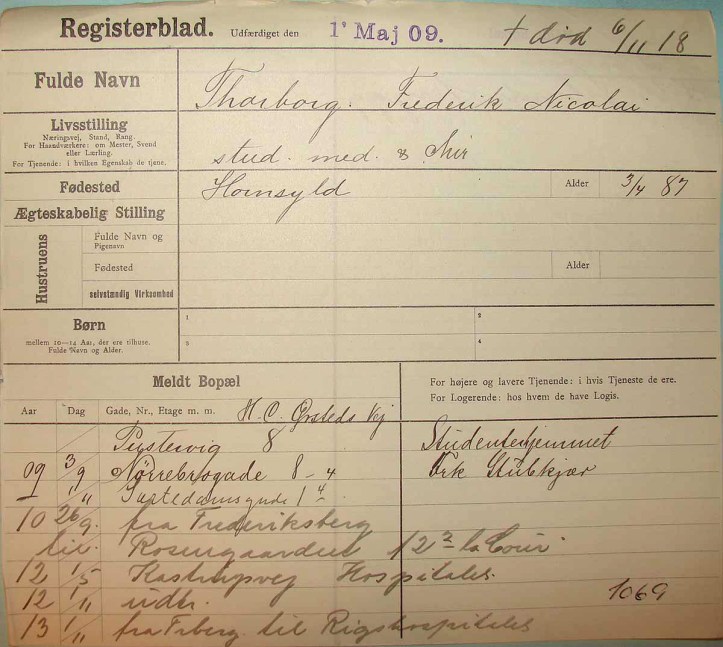 Registerblad. Udfærdiget den 1' Maj 09. † død 6/11 18
Fulde Navn
Thorborg. Frederik Nicolai
Livsstilling
Næringsvej, Stand, Rang.
For Haandværkere: om Mester, Svend
eller Lærling.
For Tjenende: i hvilken Egenskab de tjene.
stud. med. &
Fødested
Hornsyld
Alder 3/4 87
Ægteskabelig Stilling
Hustruens
Fulde Navn og
Pigenavn
Fødested
Alder
selvstændig Virksomhed
Børn
mellem 10-14 Aar, der ere tilhuse.
Fulde Navn og Alder.
1 2
3 4
Meldt Bopæl
For højere og lavere Tjenende: i hvis Tjeneste de ere.
For Logerende: hos hvem de have Logis.
Aar Dag Gade, Nr., Etage m. m. H. C. Ørsteds Vej
Pustervig 8 Studenterhjemmet
09 3/9 Nørrebrogade 8-4 Stubkjær
1/11 Sortedamsgade 1 4
10 26/9. fra Frederiksberg
til. Rosengaarden 12 2 la Cour.
12 1/5 Kastrupvej Hospitalet.
12 1/11 udr. 1069
13 1/11 fra Frberg. til Rigshospitalet